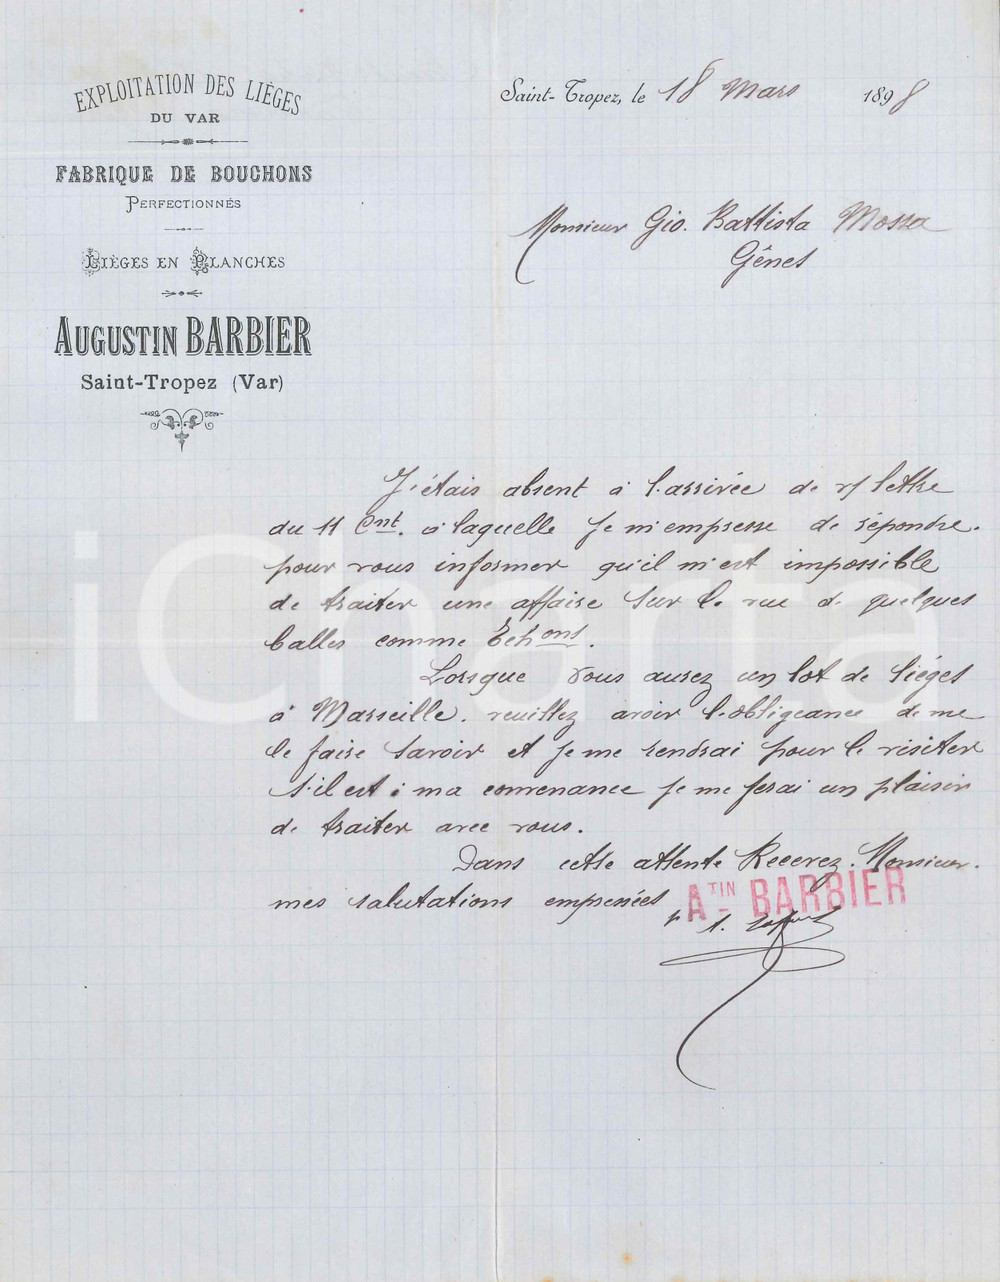 EXPLOITATION DES LIÈGES
DU VAR
FABRIQUE DE BOUCHONS
PERFECTIONNÉS
LIÈGES EN PLANCHES
AUGUSTIN BARBIER
Saint-Tropez (Var)
Saint-Tropez, le 18 Mars 1898
Monsieur Gio. Battista Mossa
Gênes
J'étais absent à l'arrivée de v/ lettre
du 11 Cnt. à laquelle je m'empresse de répondre.
pour vous informer qu'il m'est impossible
de traiter une affaire sur le vue de quelques
balles comme Echons.
Lorsque vous aurez un lot de lièges
à Marseille. veuillez avoir l'obligeance de me
le faire savoir et je me rendrai pour le visiter
s'il est à ma convenance je me ferai un plaisir
de traiter avec vous.
Dans cette attente Recevez. Monsieur.
mes salutations empressées
ATIN BARBIER
iCharta